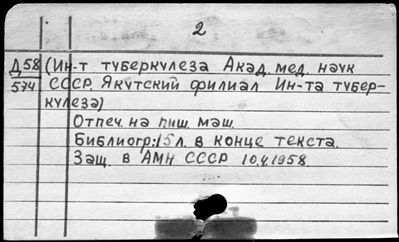 2
Д58 (Ин-т туберкулеза Акад. мед. наук
574 СССР. Якутский филиал Ин-та тубер-
кулеза)
Отпеч. на пиш. маш.
Библиогр.: 15 л. в конце текста.
Защ. в АМН СССР 10.4.1958.